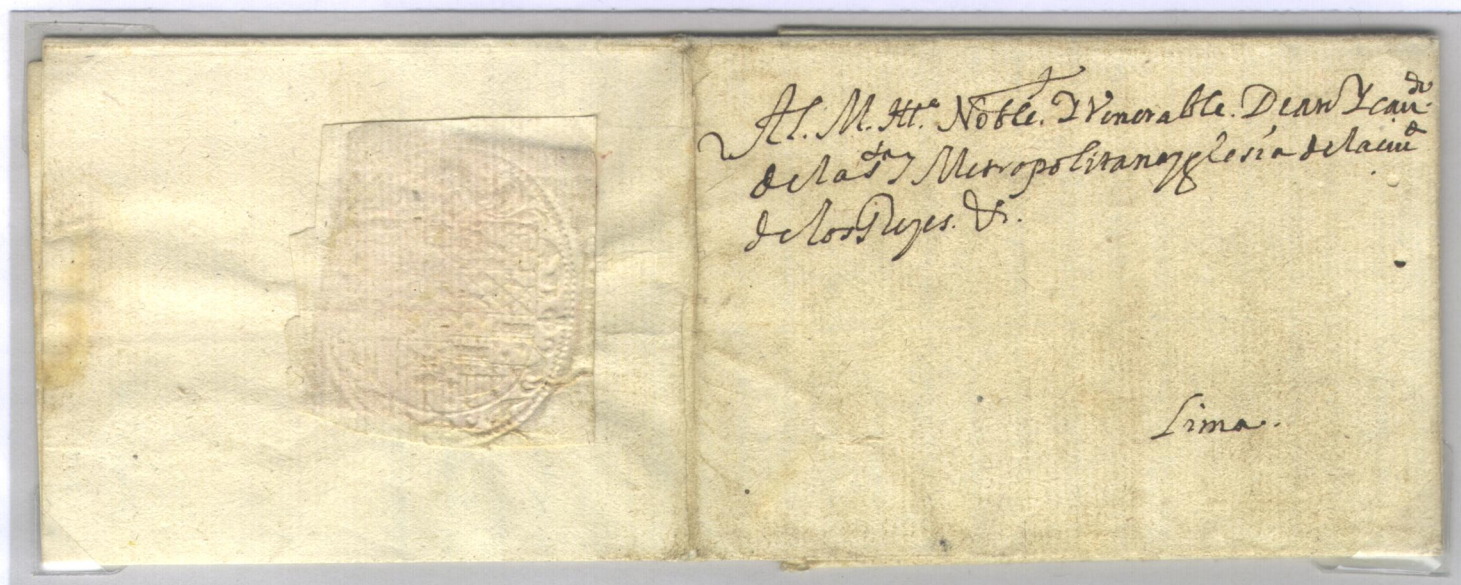 Al. M. Ille. Noble. Y Venerable. Dean Y caudo.
de la sta Metropolitana yglesia de la ciud
de los Reyes. &.
Lima.